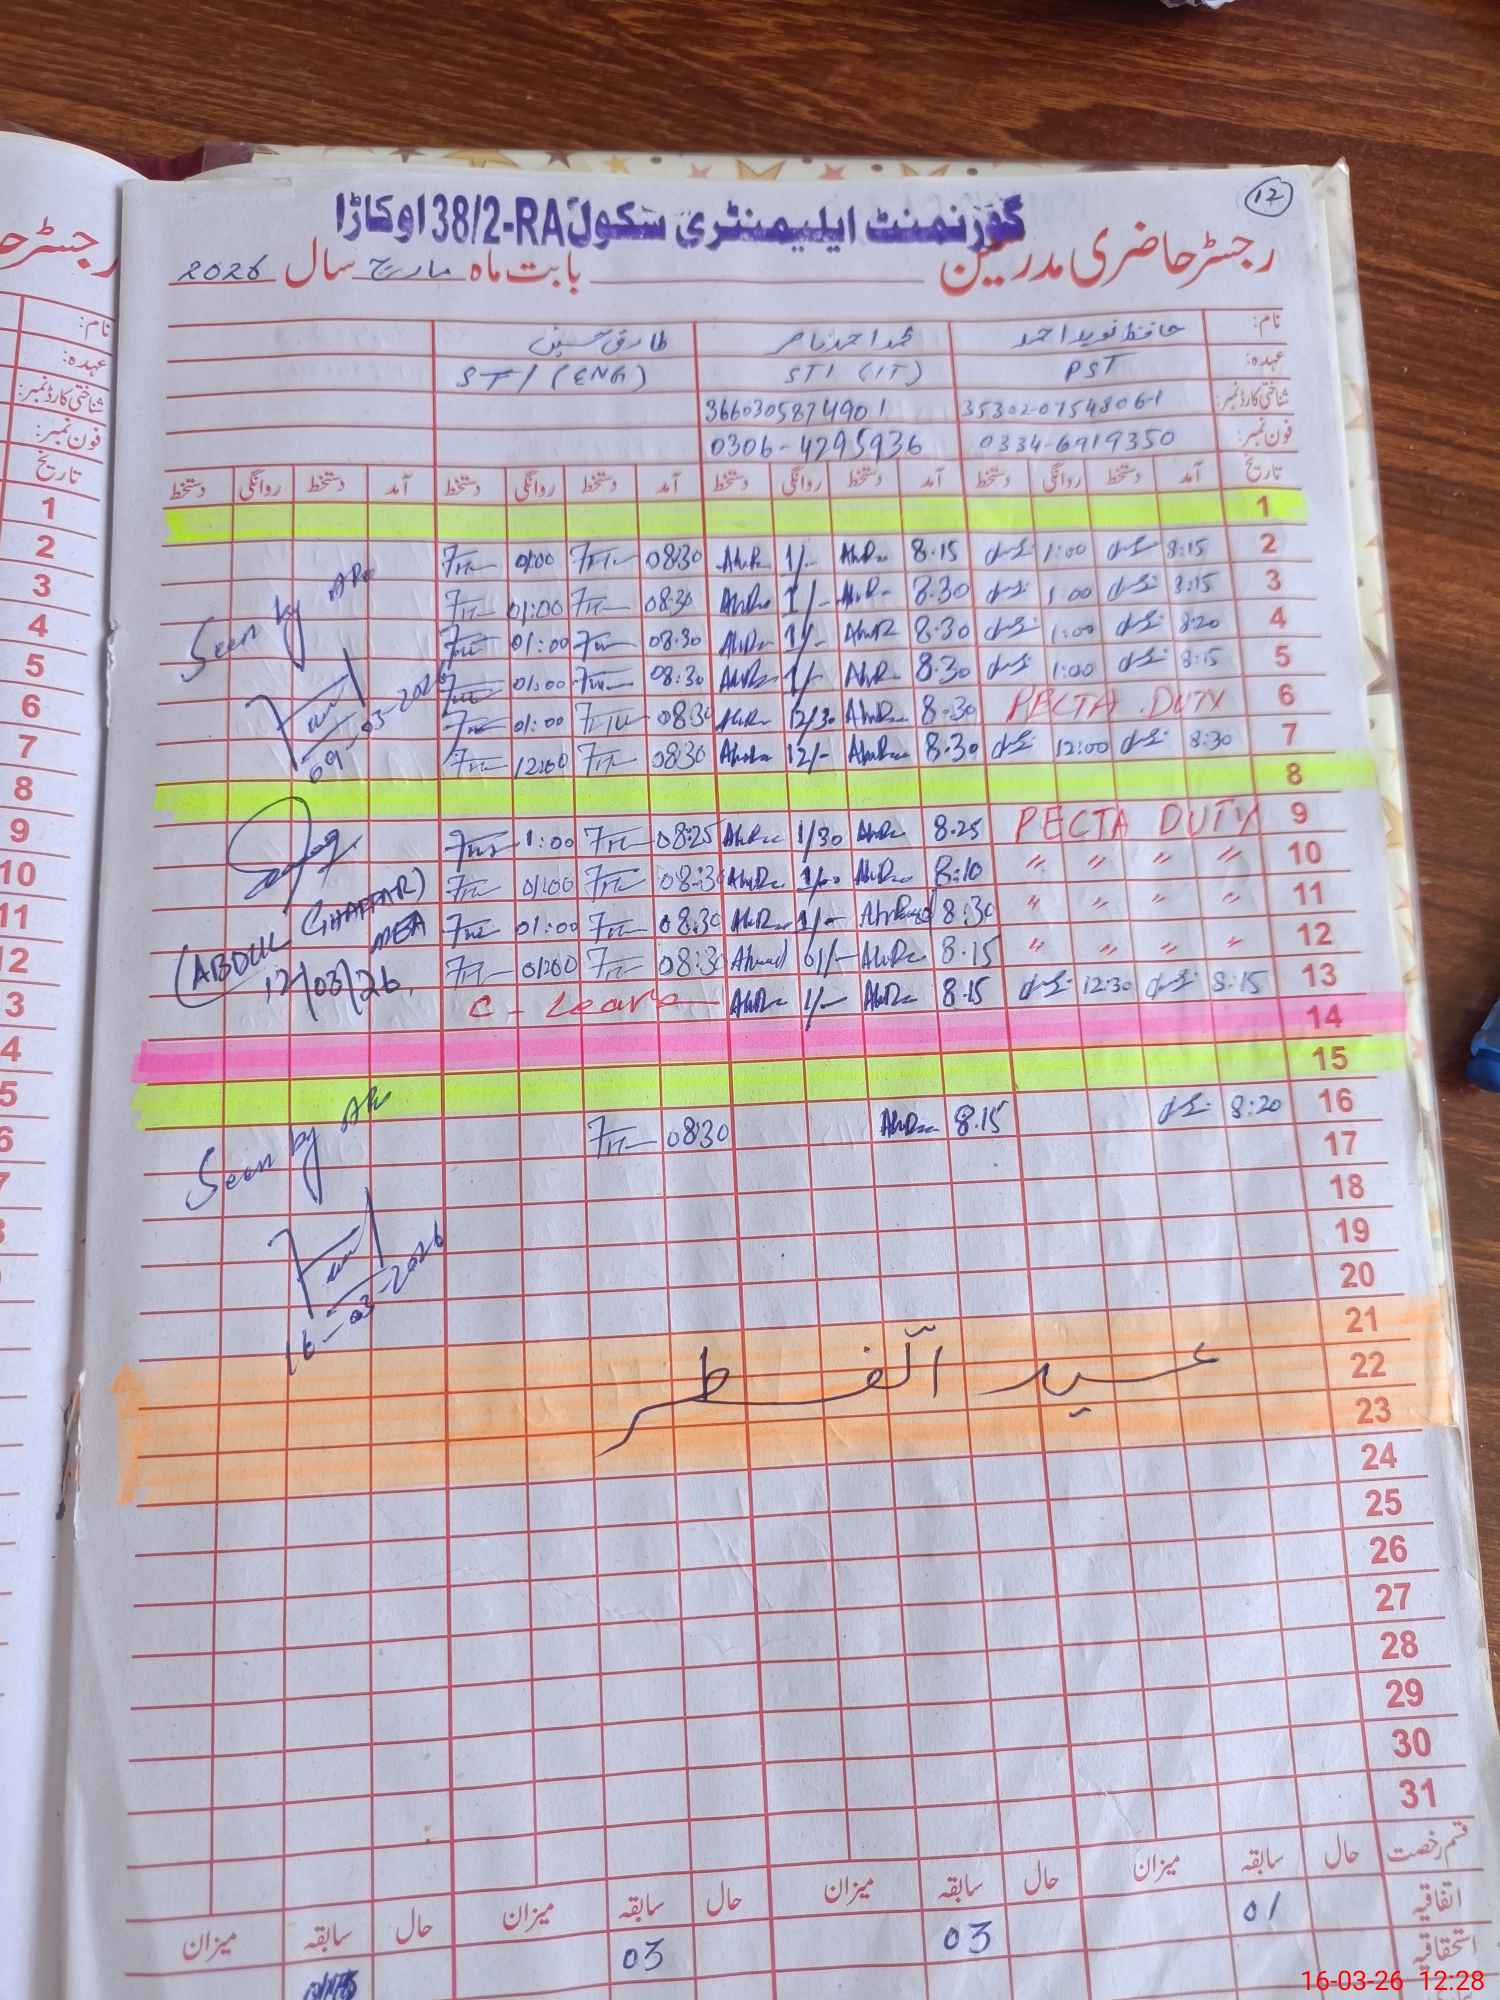 12
گورنمنٹ ایلیمنٹری سکول 38/2-RA اوکاڑا
رجسٹر حاضری مدرسین بابت ماہ مارچ سال 2026
نام: حافظ نوید احمد محمد احمد ناصر طارق حسین
عہدہ: PST STI (IT) STI (ENG)
شناختی کارڈ نمبر: 35302-0754806-1 3660305874901
فون نمبر: 0334-6919350 0306-4295936
تاریخ آمد دستخط روانگی دستخط آمد دستخط روانگی دستخط آمد دستخط روانگی دستخط آمد دستخط روانگی دستخط
1
2 8:15 1:00 8.15 1/- 08:30 01:00
3 8:15 1:00 8.30 1/- 08:30 01:00
4 8:20 1:00 8.30 1/- 08:30 01:00
5 8:15 1:00 8.30 1/- 08:30 01:00
6 PECTA DUTY 8.30 12/30 08:30 01:00
7 8:30 12:00 8.30 12/- 08:30 12:00
8
9 PECTA DUTY 8.25 1/30 08:25 1:00
10 " " " " 8:10 08:30 01:00
11 " " " " 8:30 1/- 08:30 01:00
12 " " " " 8.15 01/- 08:30 01:00
13 8:15 12:30 8.15 1/- C - Leave
14
15
16 8:20 8.15 08:30
17
18
19
20
21
22 عید الفطر
23
24
25
26
27
28
29
30
31
Seen by
09-03-2026
(ABDUL GHAFFAR)
MEA
12/03/26
Seen by
16-03-2026
قسم رخصت حال سابقہ میزان حال سابقہ میزان حال سابقہ میزان حال سابقہ میزان
اتفاقیہ 01 03 03
استحقاقیہ
رجسٹر حا
نام:
عہدہ:
شناختی کارڈ نمبر:
فون نمبر:
تاریخ
1
2
3
4
5
6
7
8
9
10
11
12
3
4
5
6
7
16-03-26 12:28